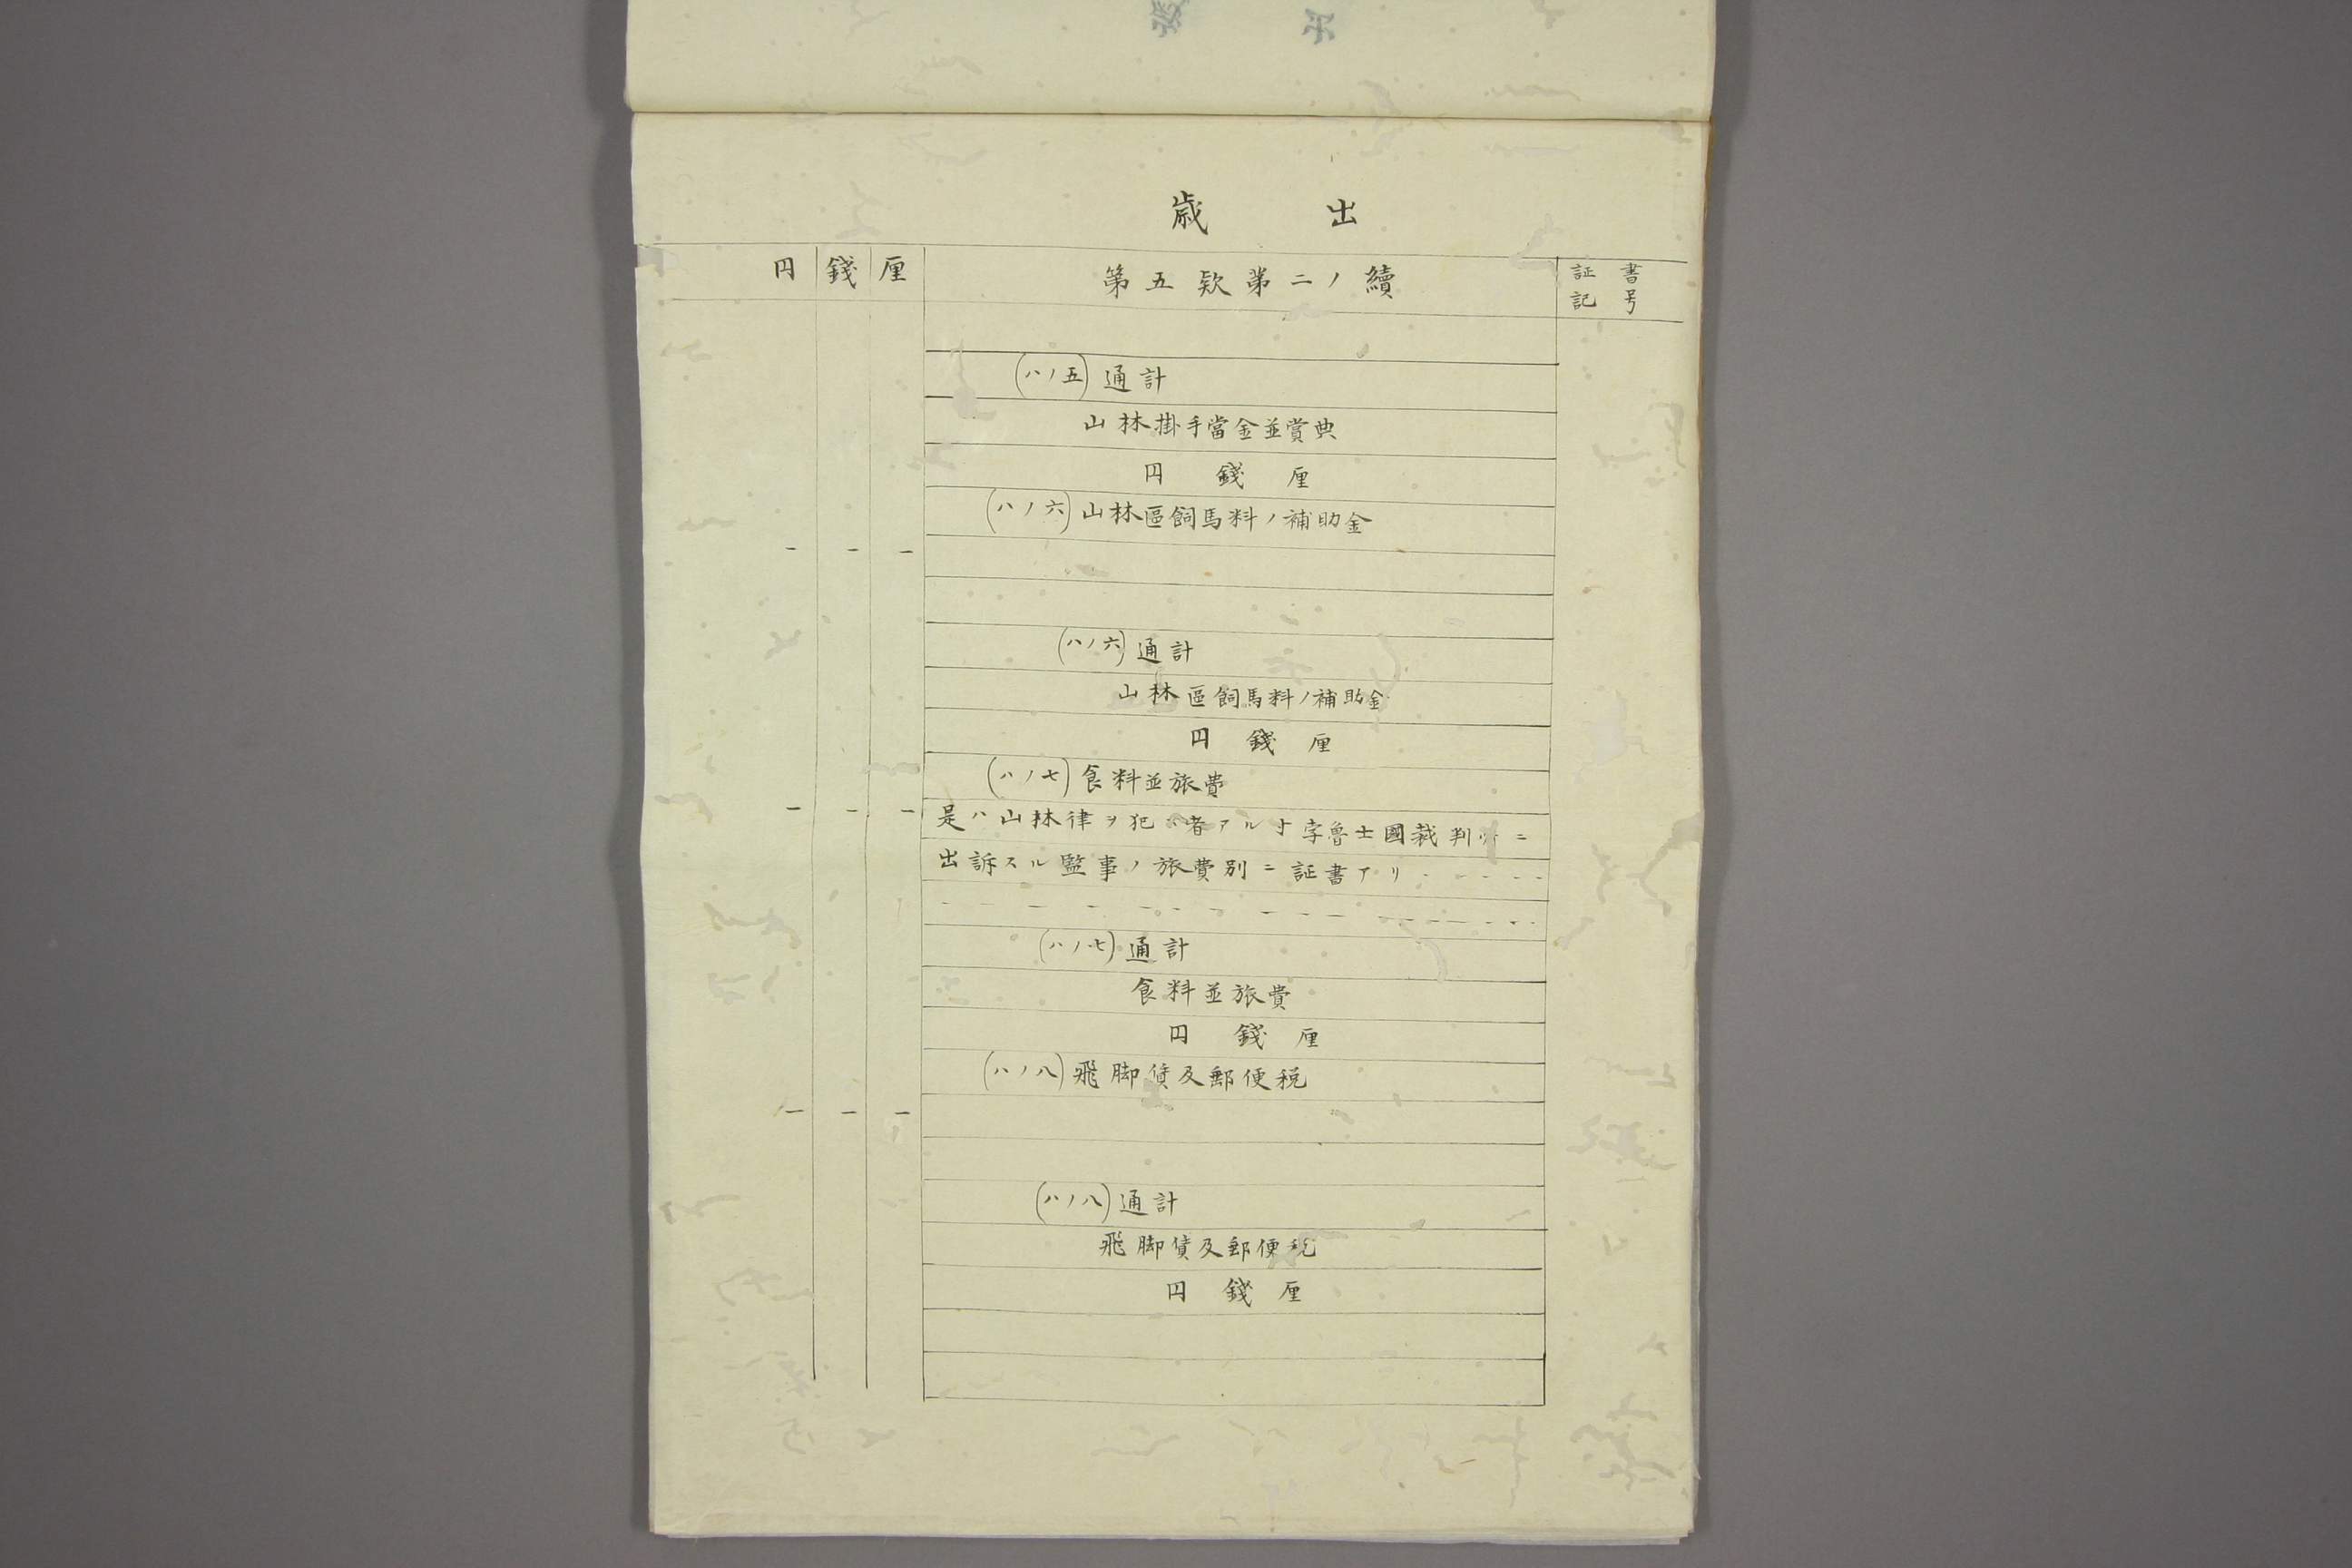 歳出
円 錢 厘 第五欵第二ノ續 証書
記号
(ハノ五)通計
山林掛手當金並賞典
円 錢 厘
(ハノ六)山林區飼馬料ノ補助金
(ハノ六)通計
山林區飼馬料ノ補助金
円 錢 厘
(ハノ七)食料並旅費
是ハ山林律ヲ犯ス者アル寸孛魯士國裁判所ニ
出訴スル監事ノ旅費別ニ証書アリ
(ハノ七)通計
食料並旅費
円 錢 厘
(ハノ八)飛脚賃及郵便税
(ハノ八)通計
飛脚賃及郵便税
円 錢 厘